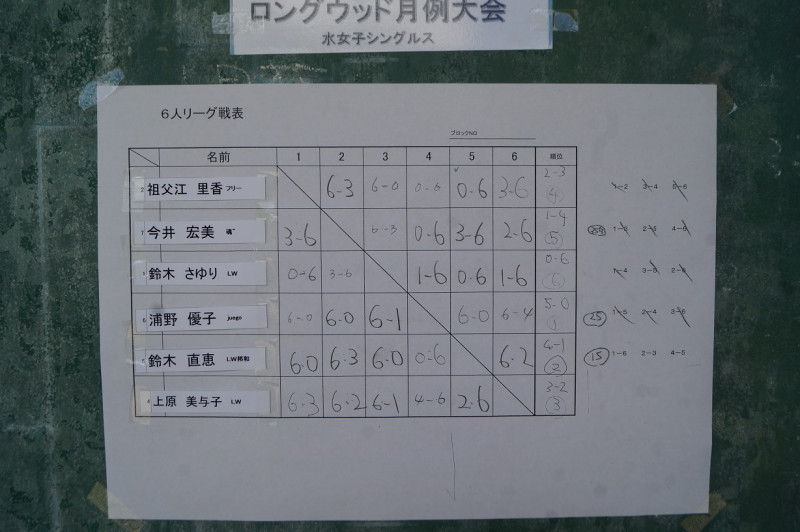 ロングウッド月例大会
水女子シングルス
6人リーグ戦表
ブロックNO
名前 1 2 3 4 5 6 順位
祖父江 里香 フリー 6-3 6-0 0-6 0-6 3-6 2-3 ④
今井 宏美 3-6 6-3 0-6 3-6 2-6 1-4 ⑤
鈴木 さゆり LW 0-6 3-6 1-6 0-6 1-6 0-6 ⑥
浦野 優子 juego 6-0 6-0 6-1 6-0 6-4 5-0 ①
鈴木 直恵 LW昭和 6-0 6-3 6-0 0-6 6-2 4-1 ②
上原 美与子 LW 6-3 6-2 6-1 4-6 2-6 3-2 ③
1-2 3-4 5-6
1-3 2-5 4-6
1-4 3-5 2-6
25 1-5 2-4 3-6
15 1-6 2-3 4-5